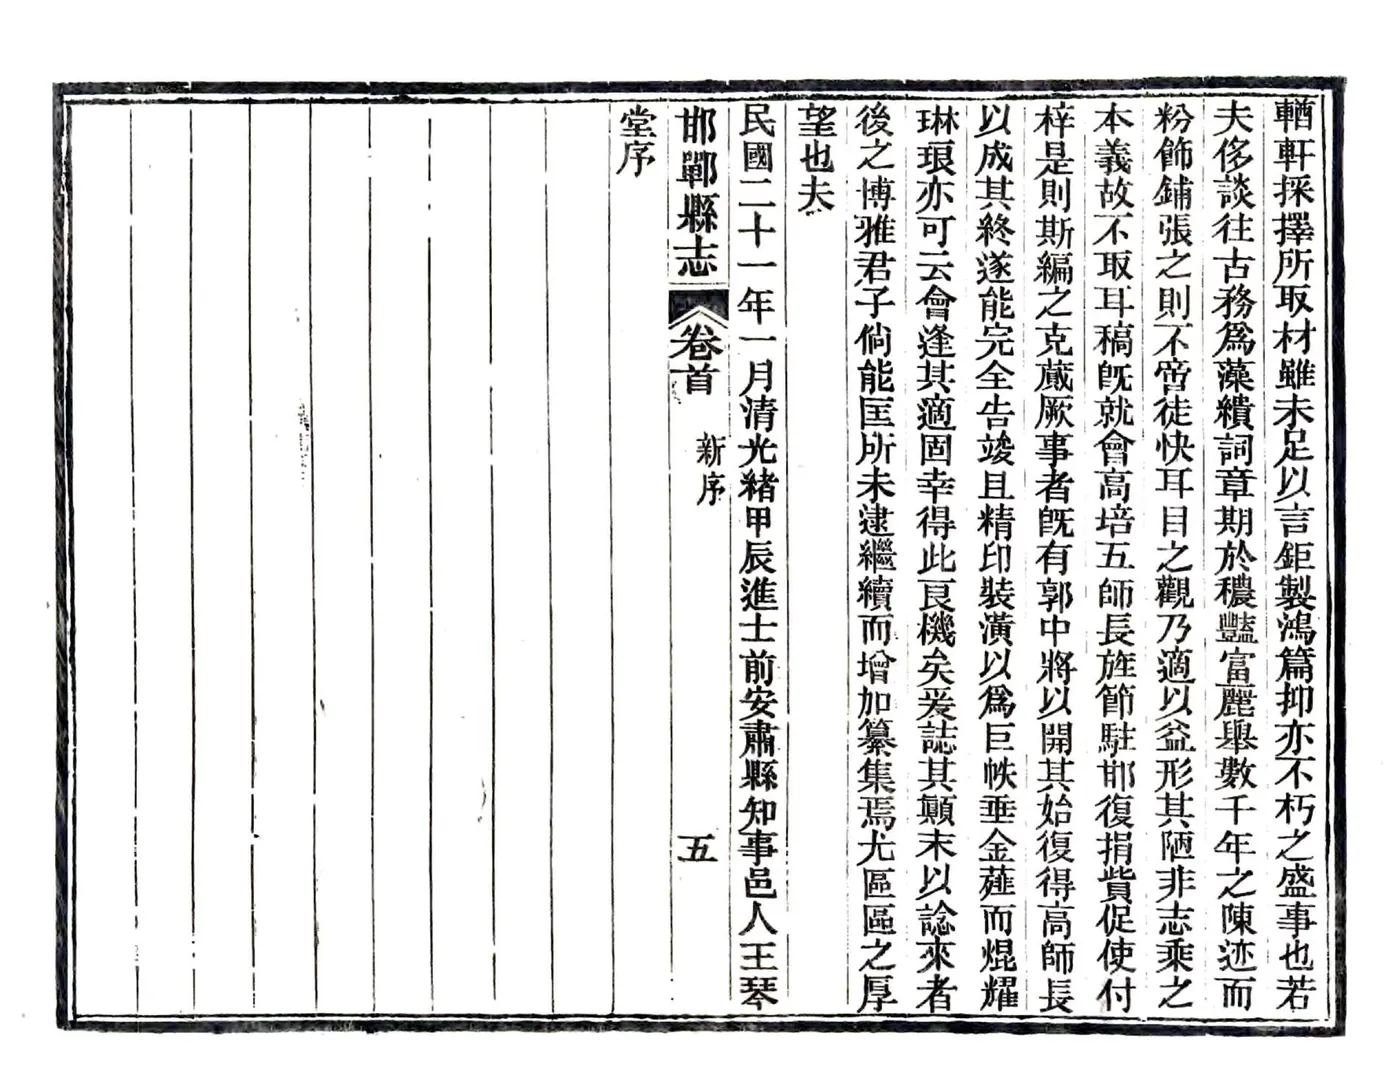 輶軒採擇所取材雖未足以言鉅製鴻篇抑亦不朽之盛事也若
夫侈談往古務爲藻繢詞章期於穠豔富麗舉數千年之陳迹而
粉飾鋪張之則不啻徒快耳目之觀乃適以益形其陋非志乘之
本義故不取耳稿旣就會高培五師長旌節駐邯復捐貲促使付
梓是則斯編之克蕆厥事者旣有郭中將以開其始復得高師長
以成其終遂能完全告竣且精印裝潢以爲巨帙垂金薤而焜耀
琳琅亦可云會逢其適固幸得此良機矣爰誌其顚末以諗來者
後之博雅君子倘能匡所未逮繼續而增加纂集焉尤區區之厚
望也夫
民國二十一年一月清光緖甲辰進士前安肅縣知事邑人王琴
邯鄲縣志 卷首 新序 五
堂序